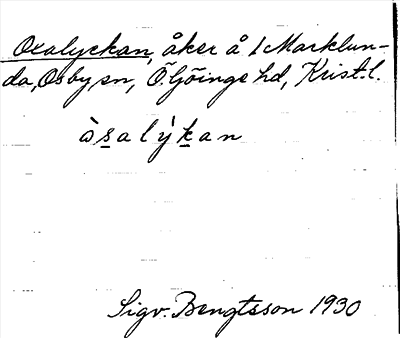 Oxalyckan, åker å 1 Marklun-
da, Osby sn, Ö. Göinge hd, Krist. l.
àsalỳkan
Sigv. Bengtsson 1930